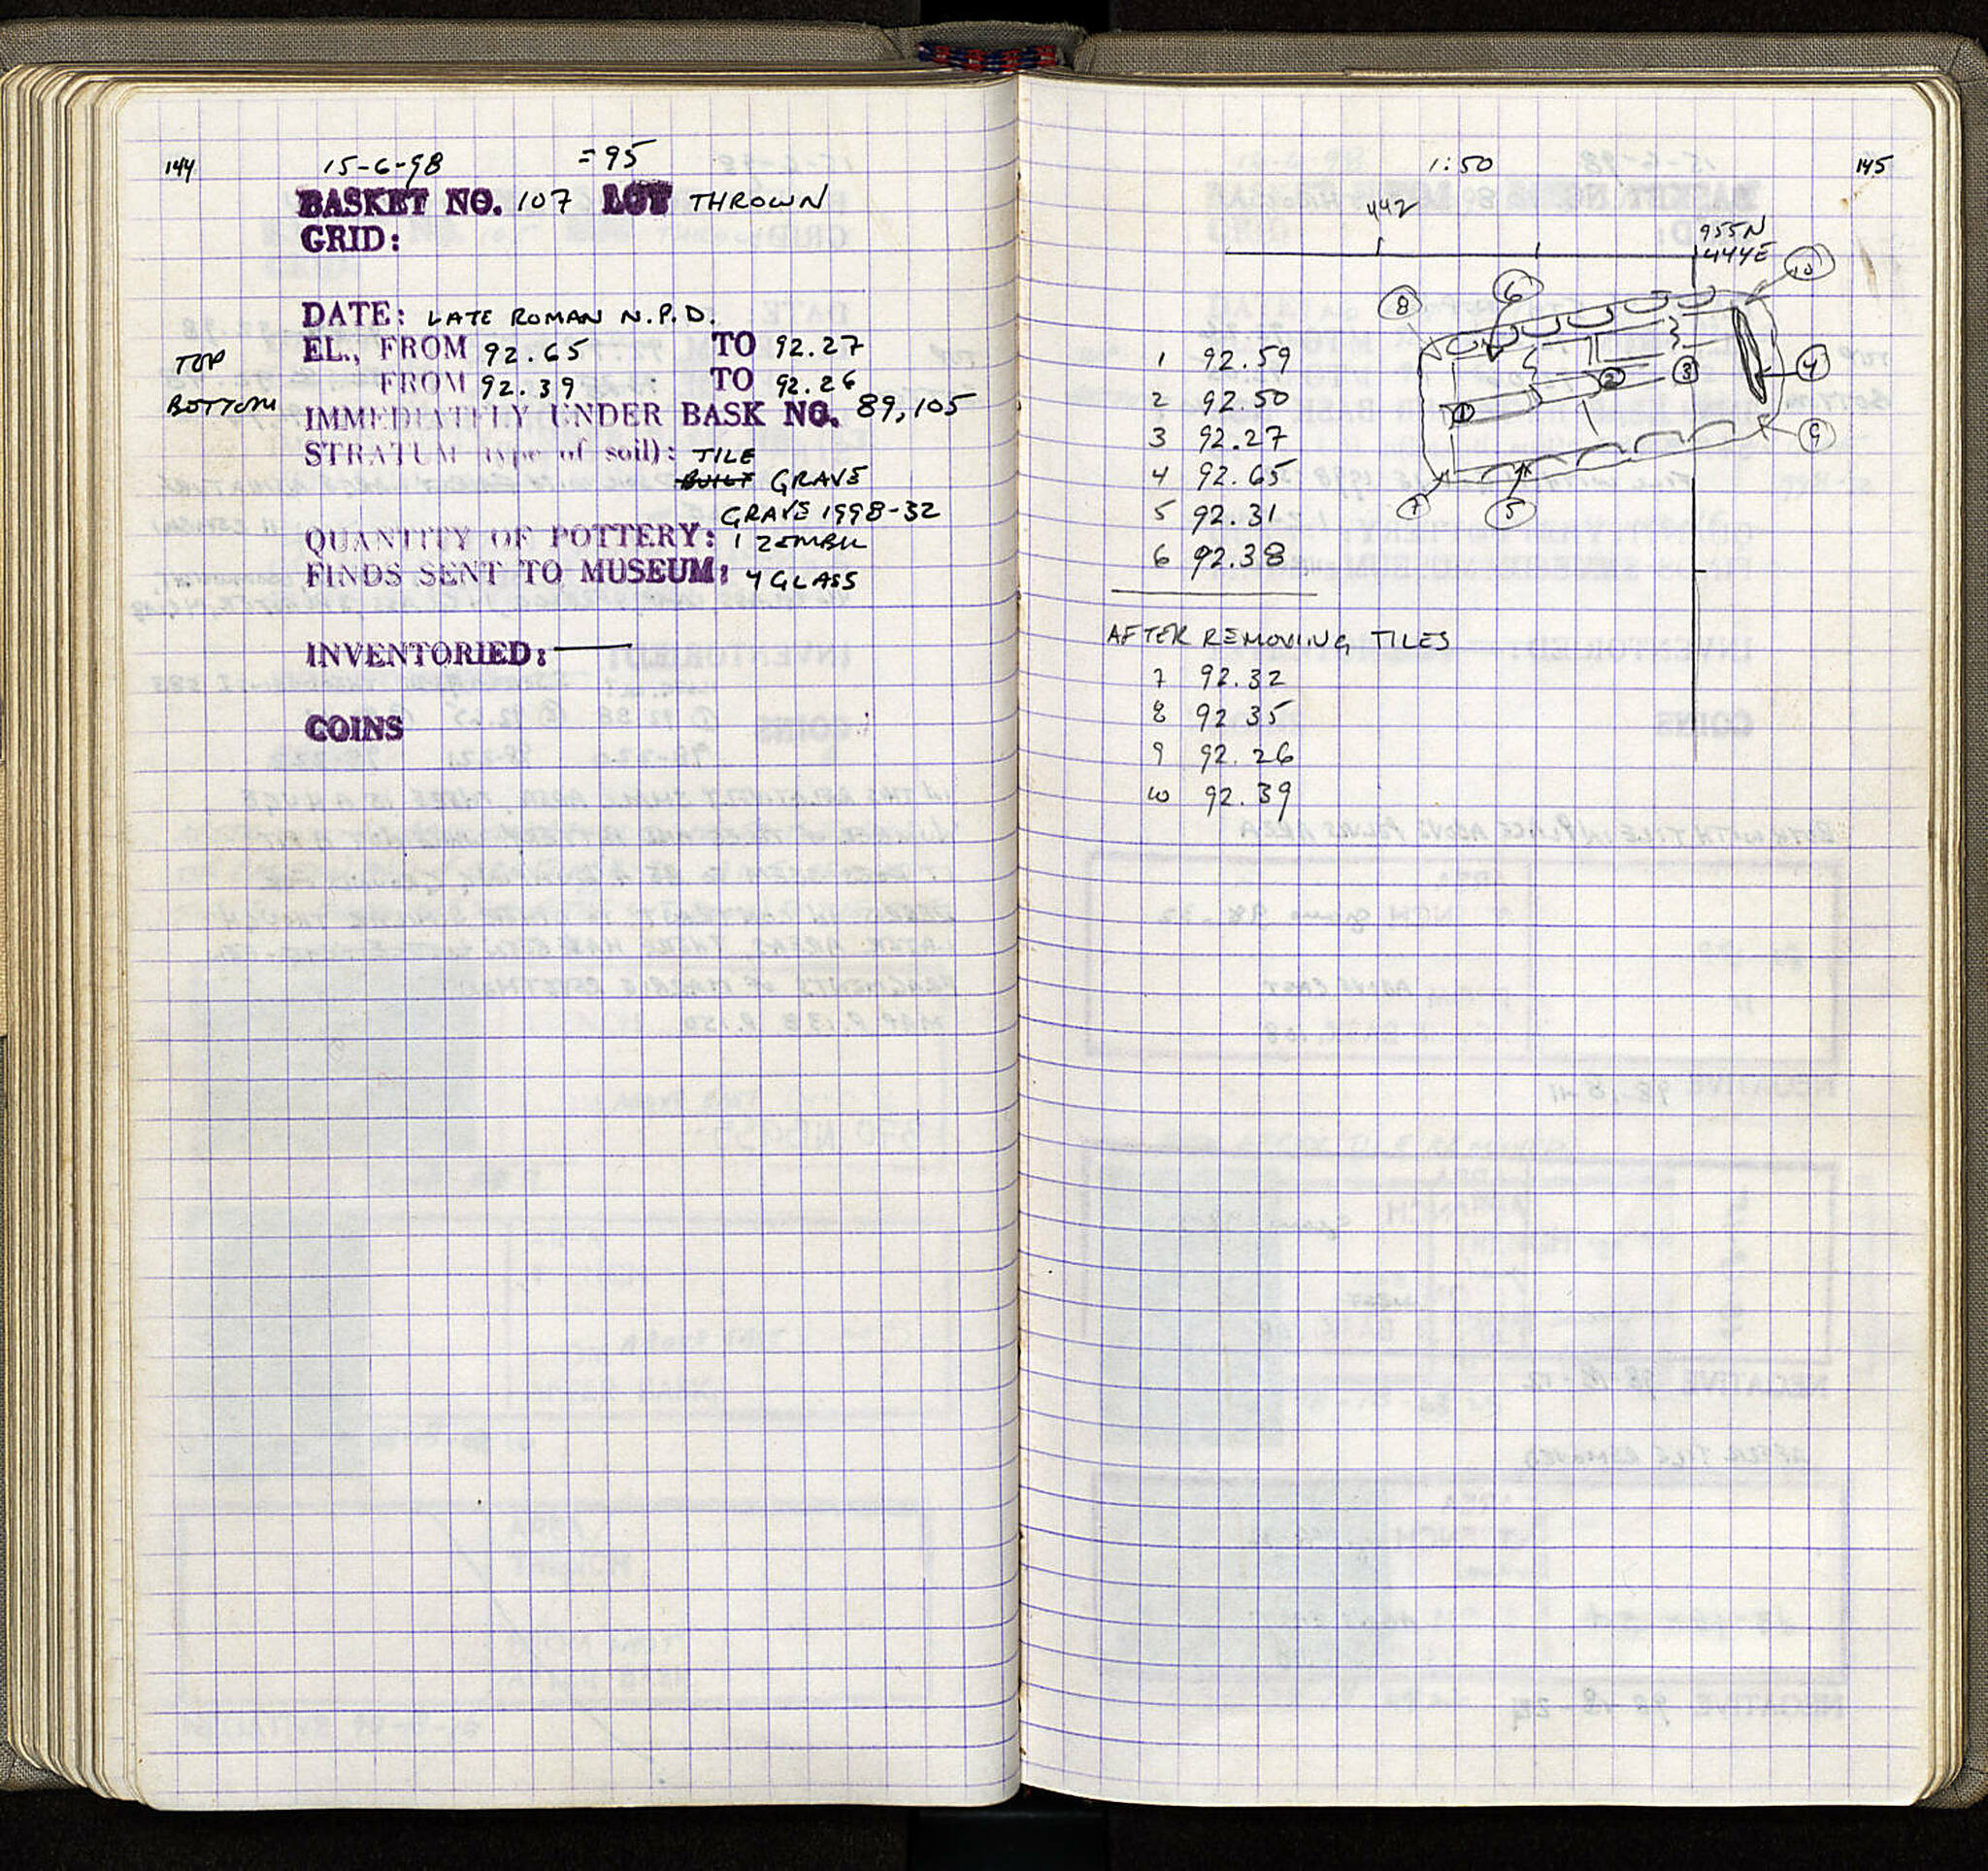 144
15-6-98 =95
BASKET NO. 107 LOT THROWN
GRID:
DATE: LATE ROMAN N.P.D.
TOP EL., FROM 92.65 TO 92.27
BOTTOM FROM 92.39 TO 92.26
IMMEDIATELY UNDER BASK NO. 89,105
STRATUM (type of soil): TILE
BUILT GRAVE
GRAVE 1998-32
QUANTITY OF POTTERY: 1 ZEMBIL
FINDS SENT TO MUSEUM: 4 GLASS
INVENTORIED: —
COINS
1:50 145
442
955N
444E
10
8 6
4
1 2 3
9
7 5
1 92.59
2 92.50
3 92.27
4 92.65
5 92.31
6 92.38
AFTER REMOVING TILES
7 92.32
8 92.35
9 92.26
10 92.39